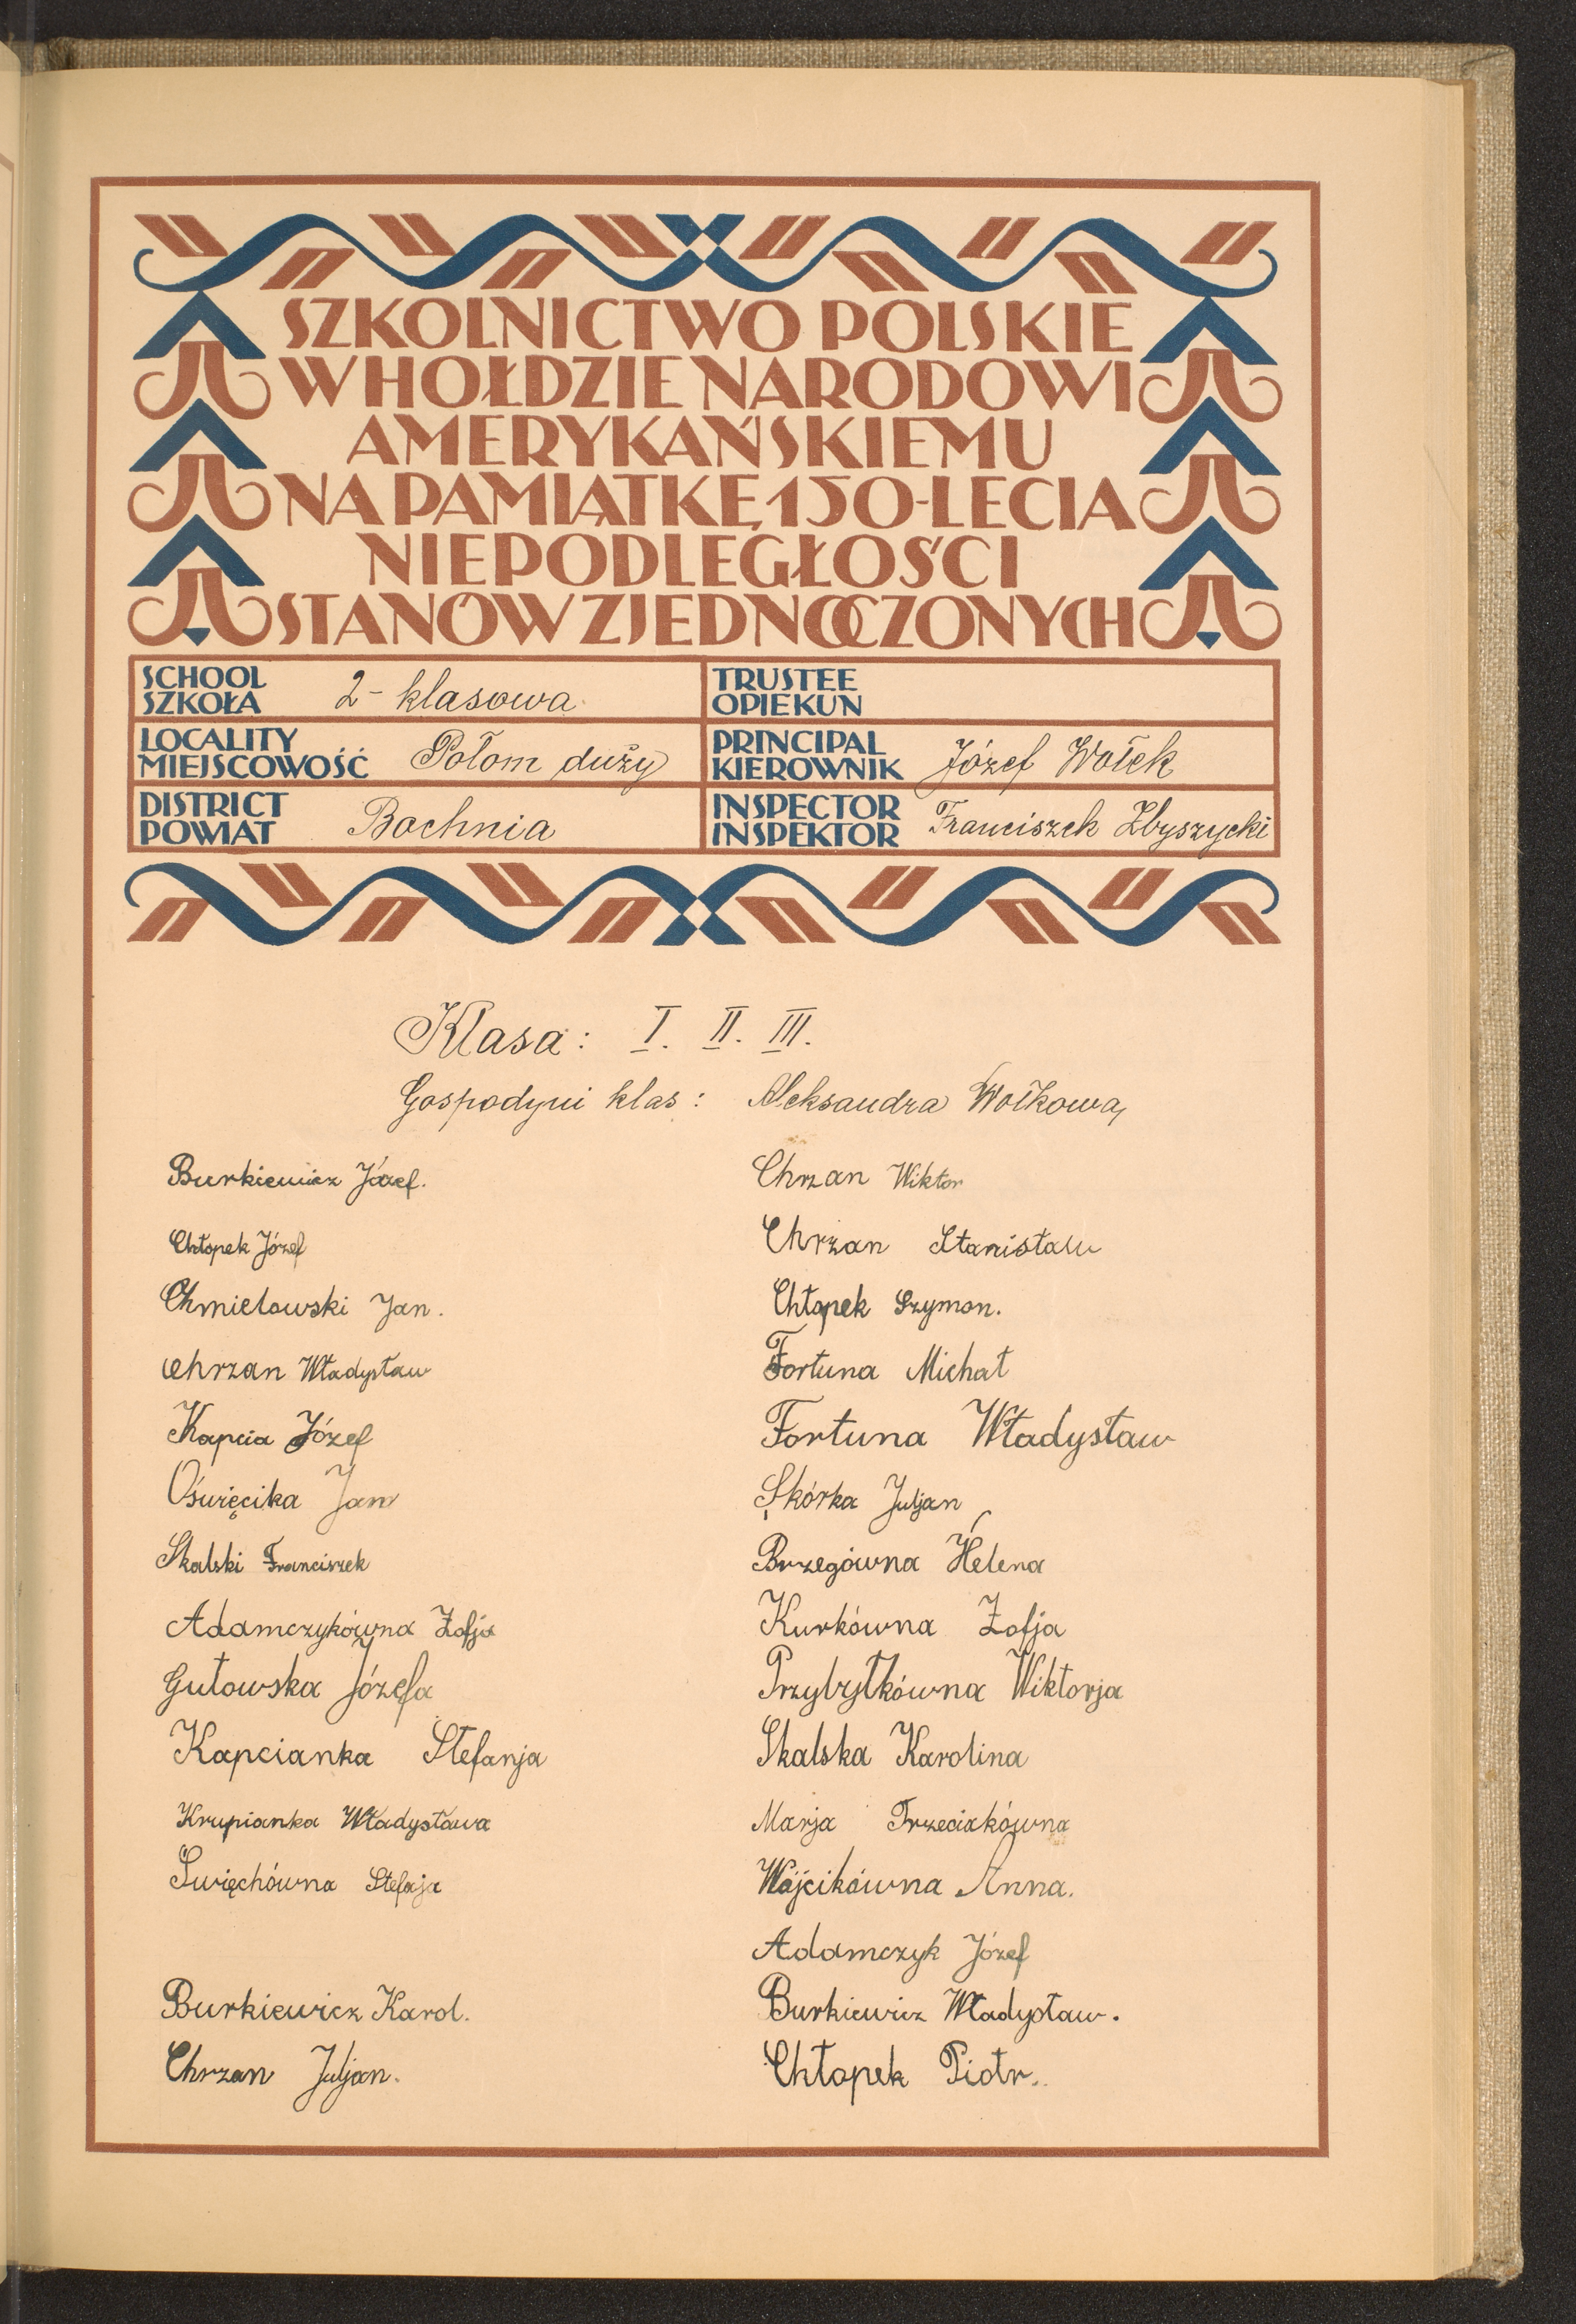 SZKOLNICTWO POLSKIE
W HOŁDZIE NARODOWI
AMERYKAŃSKIEMU
NA PAMIĄTKĘ 150-LECIA
NIEPODLEGŁOŚCI
STANÓW ZJEDNOCZONYCH
SCHOOL
SZKOŁA 2-klasowa
TRUSTEE
OPIEKUN
LOCALITY
MIEJSCOWOŚĆ Połom duży
PRINCIPAL
KIEROWNIK Józef Wołek
DISTRICT
POWIAT Bochnia
INSPECTOR
INSPEKTOR Franciszek Zbyszycki
Klasa: I. II. III.
Gospodyni klas: Aleksandra Wołkowa
Burkiewicz Józef.
Chłopek Józef
Chmielowski Jan.
Chrzan Władysław
Kapcia Józef
Oświęcika Jan
Skalski Franciszek
Adamczykówna Zofja
Gutowska Józefa
Kapcianka Stefanja
Krupianka Władysława
Święchówna Stefaja
Burkiewicz Karol.
Chrzan Juljan.
Chrzan Wiktor
Chrzan Stanisław
Chłopek Szymon.
Fortuna Michał
Fortuna Władysław
Skórka Juljan
Brzegówna Helena
Kurkówna Zofja
Przybyłkówna Wiktorja
Skalska Karolina
Marja Trzeciakówna
Wójcikówna Anna.
Adamczyk Józef
Burkiewicz Władysław.
Chłopek Piotr.